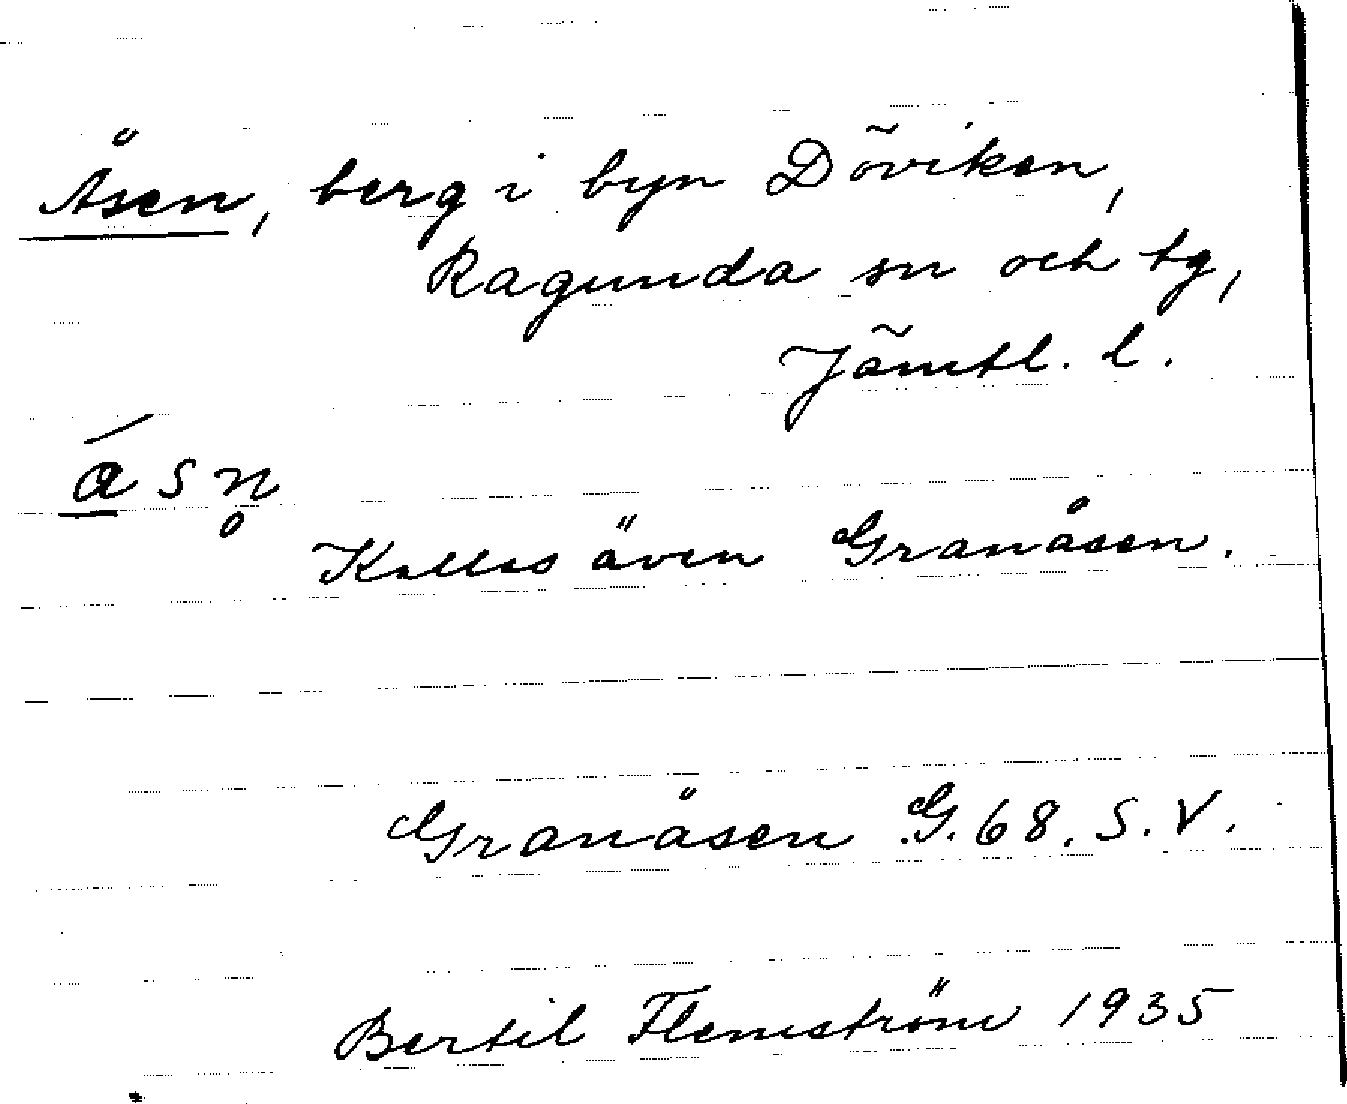 Åsen, berg i byn Döviken,
Ragunda sn och tg,
Jämtl. l.
á̱ s n̥
Kallas även Granåsen.
Granåsen G. 68. S. V.
Bertil Flemström 1935